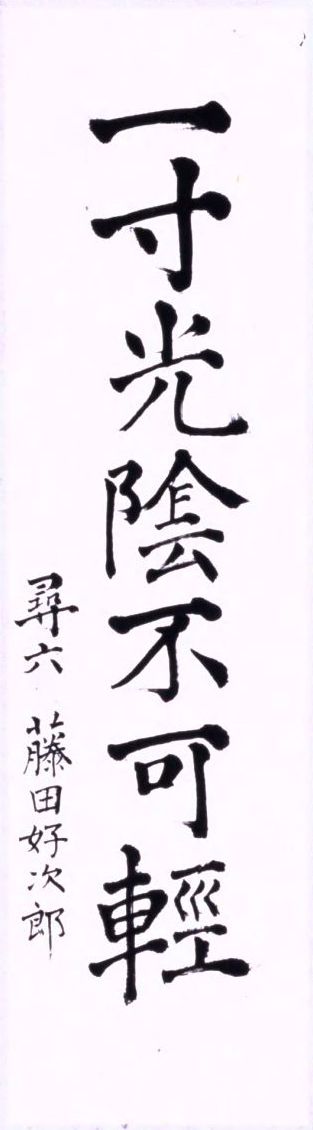 一寸光陰不可輕
尋六 藤田好次郎